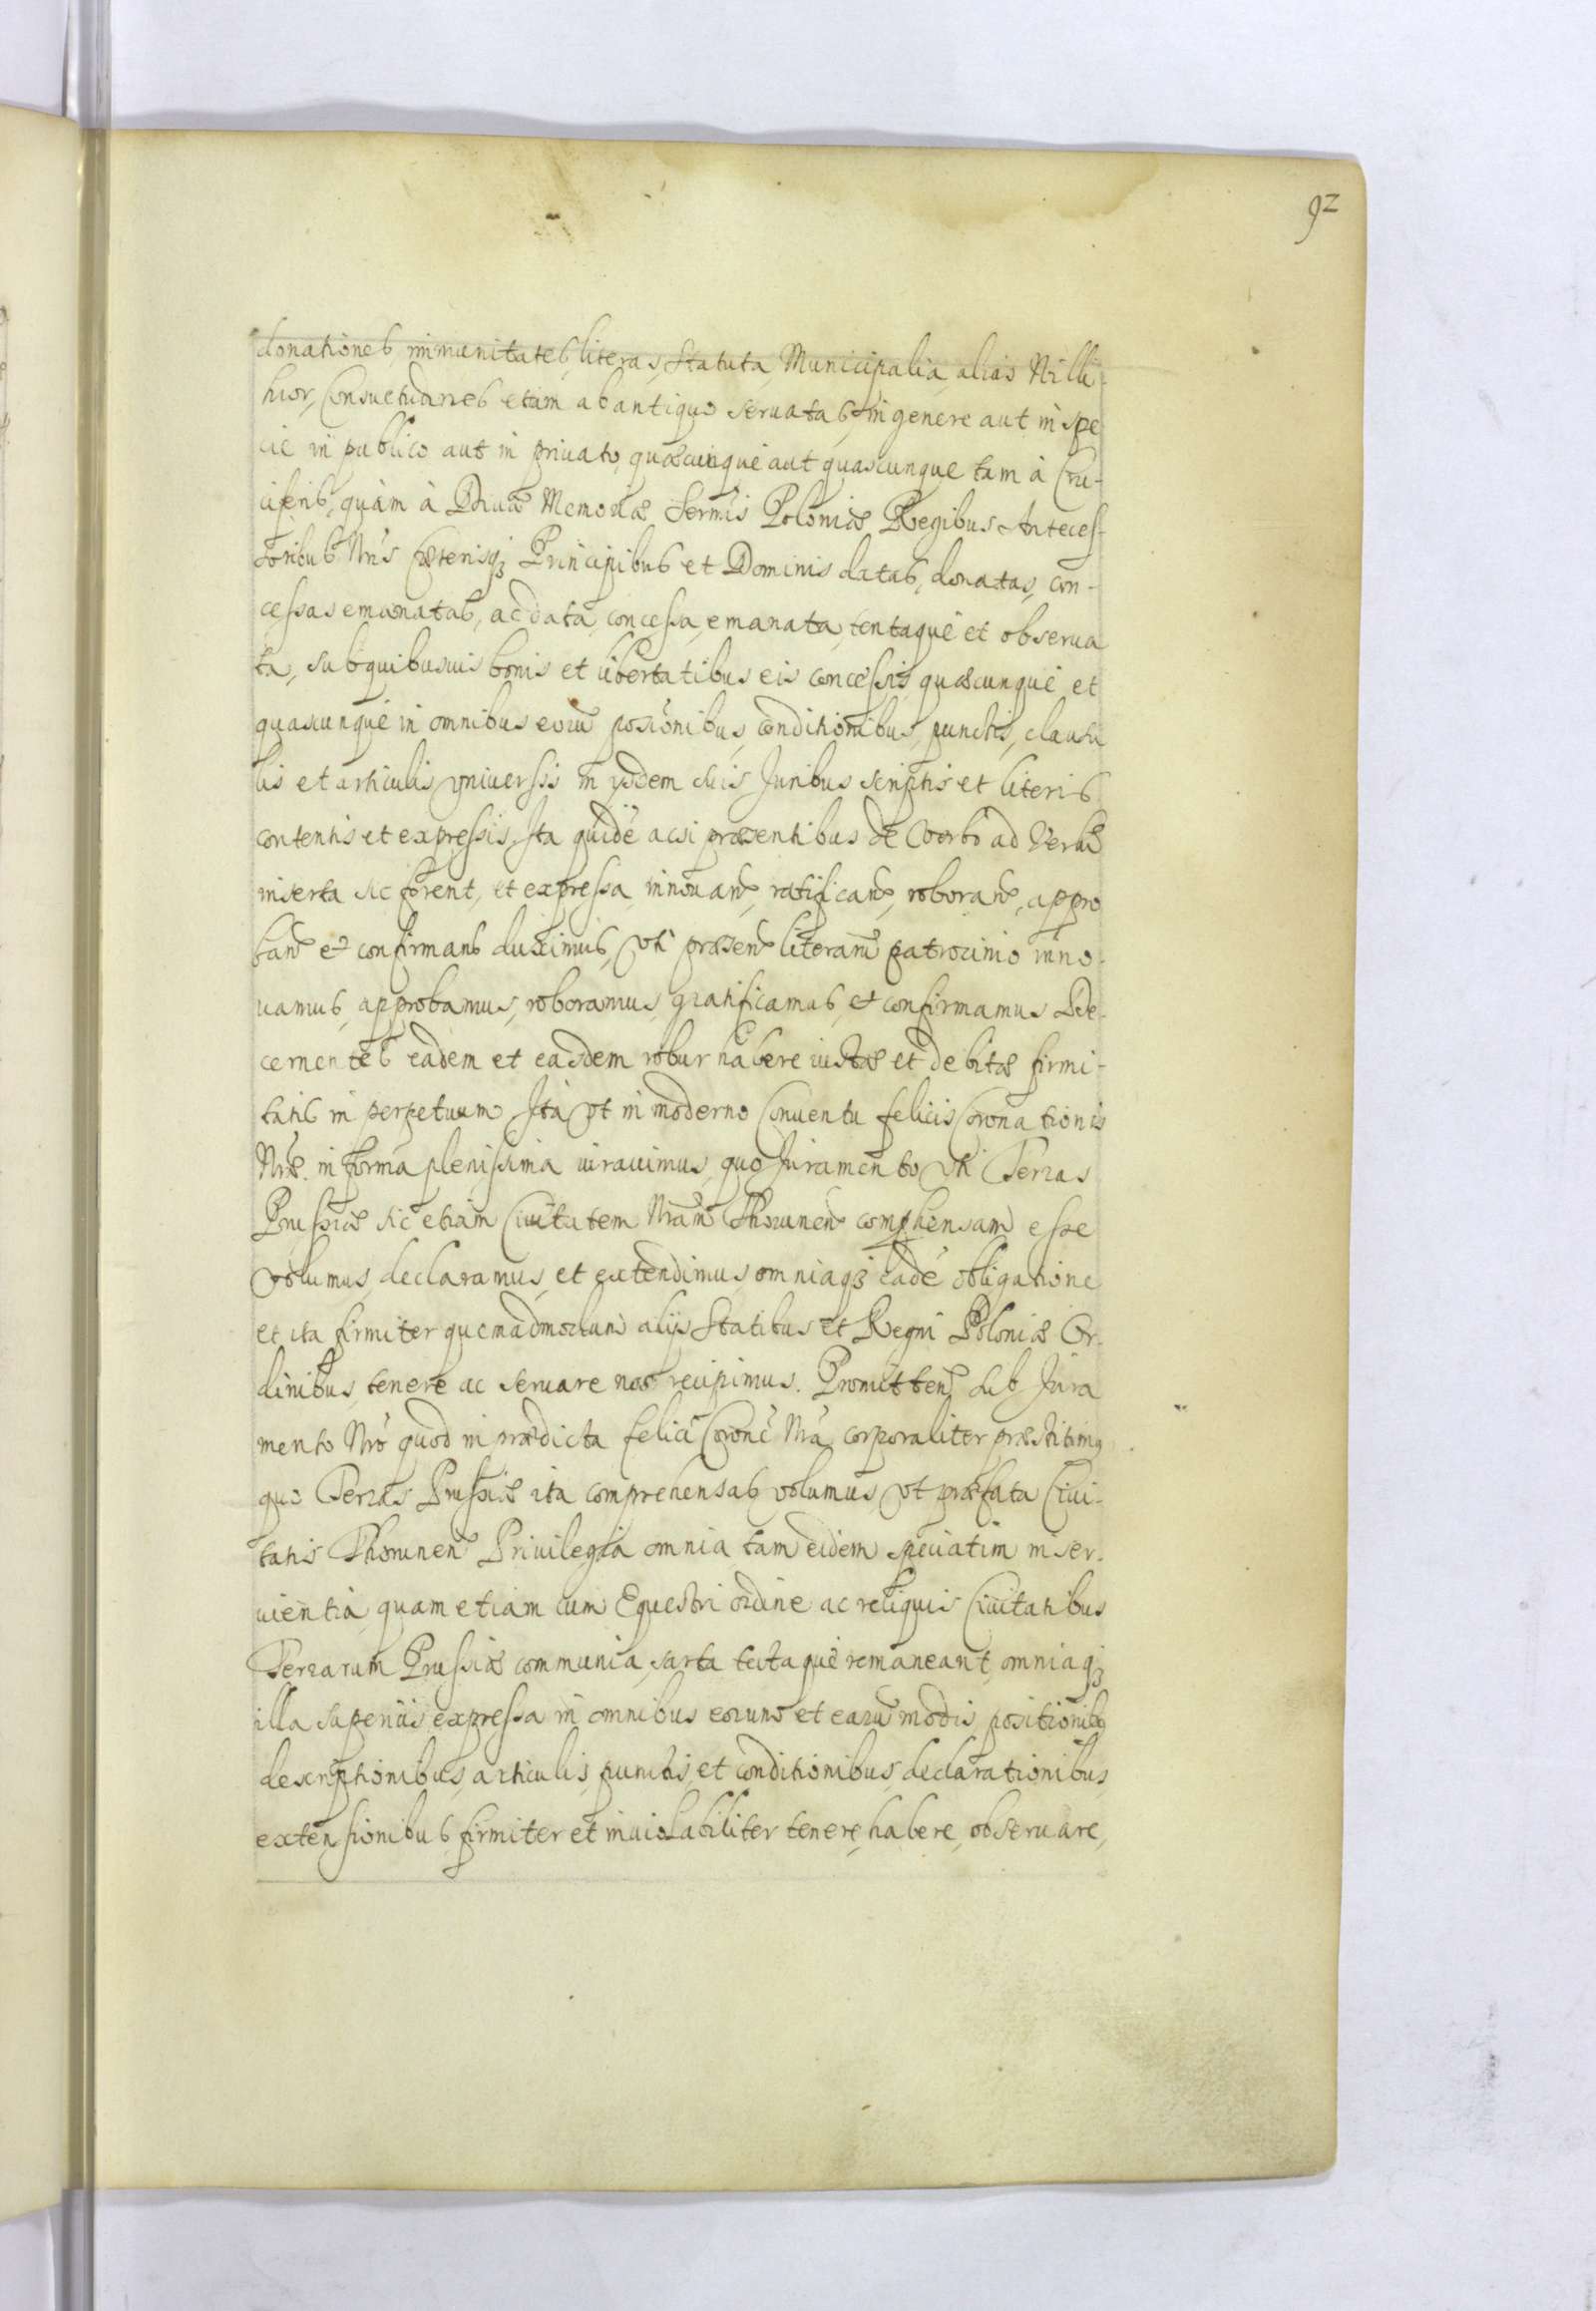 92
donationes, immunitates, literas, Statuta, Municipalia, alias Willi-
huor, Consuetudines etiam ab antiquo seruatas, in genere aut in spe
cie in publico aut in priuato, quæcunque aut quascunque tam à Cru-
ciferis, quàm à Diuæ Memoriæ Sermis Poloniæ Regibus Anteces-
soribus Nris Cæterisq3 Principibus et Dominis datas, donatas, con-
cessas emanatas, ac data, concessa, emanata, tentaque et obserua
ta, sub quibusuis bonis et libertatibus eis concessis quæcunque et
quascunque in omnibus eorū positionibus, conditionibus, punctis, clausu
lis et articulis vniuersis in ysdem suis Juribus scriptis et literis
contentis et expressis, Ita quidē acsi præsentibus de Verbo ad Verbū
inserta sic forent, et expressa innouan, ratifican, roboran, appro
ban et confirmans duximus, vti præsen literarū patrocinio inno-
uamus, approbamus, roboramus, gratificamus, et confirmamus De-
cernentes eadem et easdem robur habere iustæ et debitæ firmi-
tatis in perpetuum. Ita vt in moderno Conuentu felicis Coronationis
Nræ. in forma plenissima iurauimus, quo Juramento vti Terras
Prussiæ sic etiam Ciuitatem Nram Thorunen comphensam esse
volumus, declaramus, et extendimus, omniaq3 eadē obligatione
et ita firmiter quemadmodum alijs Statibus et Regni Poloniæ Or-
dinibus, tenere ac seruare nos recipimus. Promitten sub Jura
mento Nro quod in prædicta felici Corone Nra corporaliter præstitimq
quo Terras Prussiæ ita comprehensas volumus, vt præfata Ciui-
tatis Thorunen Priuilegia omnia tam eidem speciatim inser-
uientia, quam etiam cum Equestri ordine ac reliquis Ciuitatibus
Terrarum Prussiæ communia, sarta tectaque remaneant, omniaq3
illa superius expressa in omnibus eorum et earū modis, positionibq
descriptionibus, articulis, punctis, et conditionibus, declarationibus,
extensionibus firmiter et inuiolabiliter tenere, habere, obseruare,